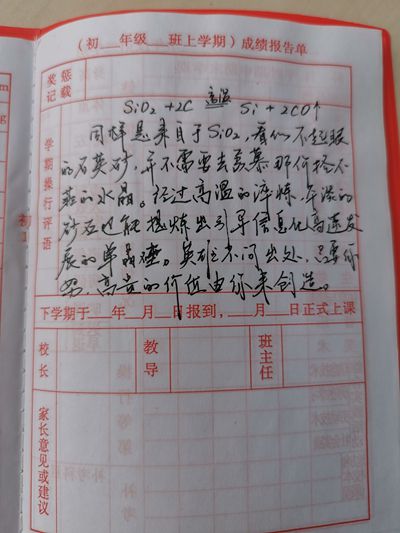 （初　年级　班上学期）成绩报告单
奖惩记载
高温
SiO₂ + 2C ══ Si + 2CO↑
学期操行评语
同样是来自于SiO₂，看似不起眼
的石英砂，并不需要去羡慕那价格不
菲的水晶。经过高温的淬炼，平淡的
砂石也能提炼出引导信息化高速发
展的单晶硅。英雄不问出处，只要你
努力，高贵的价值由你来创造。
下学期于　年　月　日报到，　月　日正式上课
校长
教导
班主任
家长意见或建议